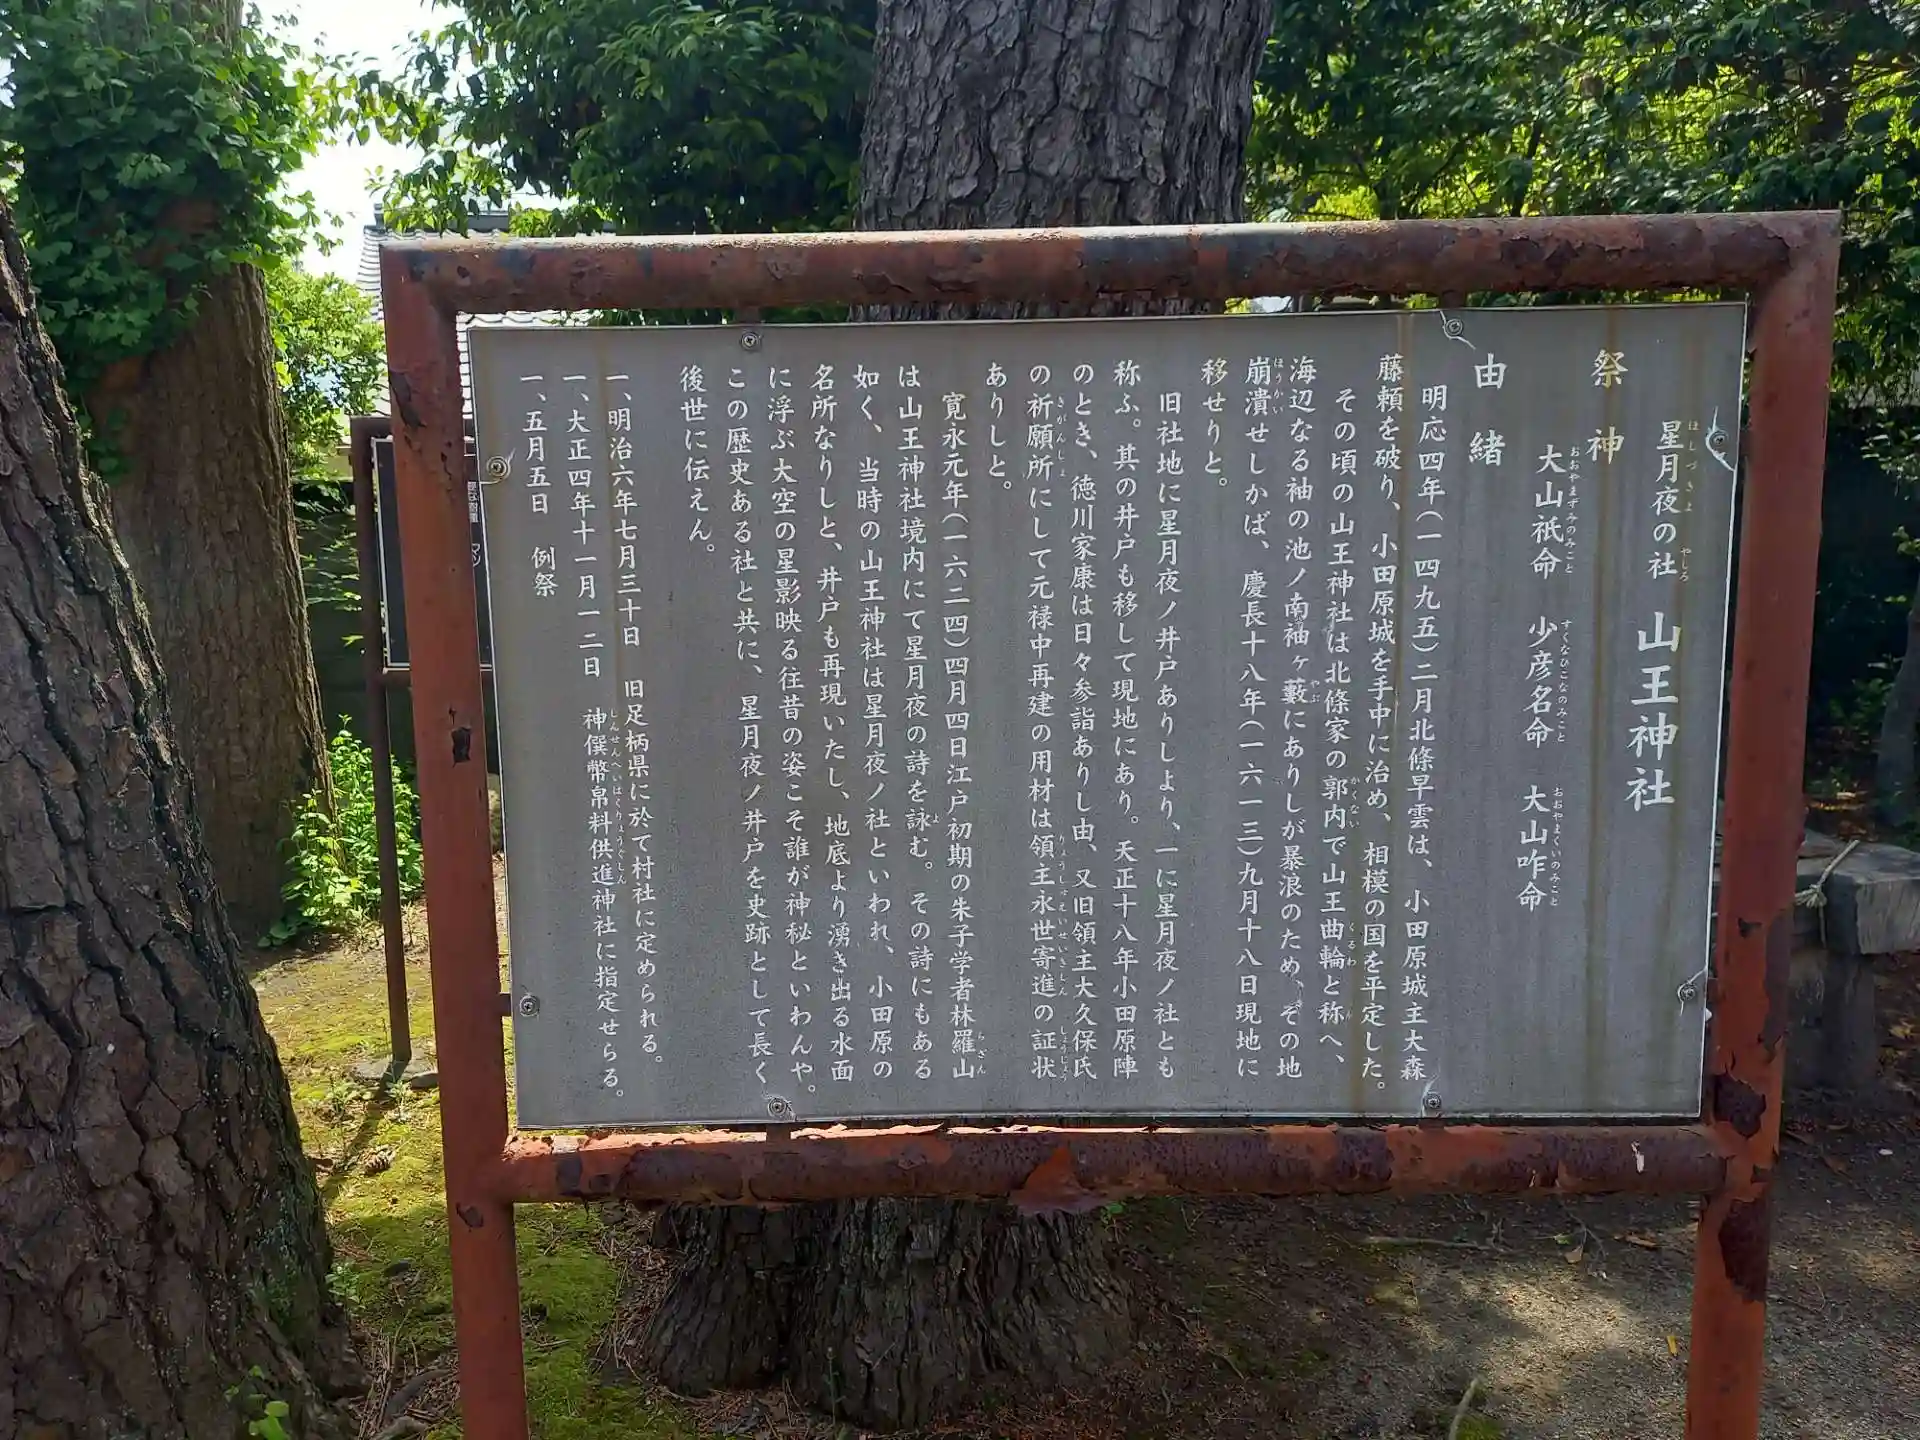 星月夜の社 山王神社
祭神
大山祇命 少彦名命 大山咋命
由緒
明応四年(一四九五)二月北條早雲は、小田原城主大森
藤頼を破り、小田原城を手中に治め、相模の国を平定した。
その頃の山王神社は北條家の郭内で山王曲輪と称へ、
海辺なる袖の池ノ南袖ヶ藪にありしが暴浪のため、その地
崩潰せしかば、慶長十八年(一六一三)九月十八日現地に
移せりと。
旧社地に星月夜ノ井戸ありしより、一に星月夜ノ社とも
称ふ。其の井戸も移して現地にあり。天正十八年小田原陣
のとき、徳川家康は日々参詣ありし由、又旧領主大久保氏
の祈願所にして元禄中再建の用材は領主永世寄進の証状
ありしと。
寛永元年(一六二四)四月四日江戸初期の朱子学者林羅山
は山王神社境内にて星月夜の詩を詠む。その詩にもある
如く、当時の山王神社は星月夜ノ社といわれ、小田原の
名所なりしと、井戸も再現いたし、地底より湧き出る水面
に浮ぶ大空の星影映る往昔の姿こそ誰が神秘といわんや。
この歴史ある社と共に、星月夜ノ井戸を史跡として長く
後世に伝えん。
一、明治六年七月三十日 旧足柄県に於て村社に定められる。
一、大正四年十一月一二日 神僎幣帛料供進神社に指定せらる。
一、五月五日 例祭